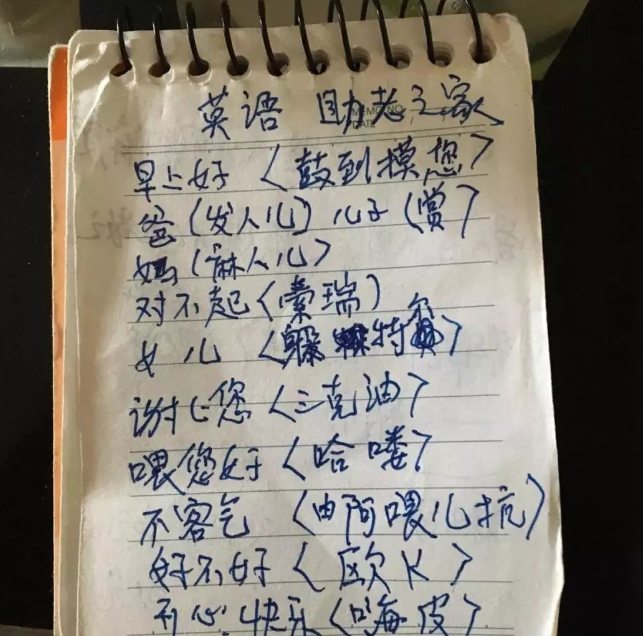 英语 助老之家
MEMO NO.
DATE
早上好〈鼓到摸您〉
爸(发人儿)儿子(赏〉
妈(麻人儿〉
对不起〈索瑞)
女儿〈躲特尔〉
谢谢您〈三克油〉
喂您好〈哈喽〉
不客气〈由阿喂儿抗)
好不好〈欧K〉
开心快乐〈嗨皮〉